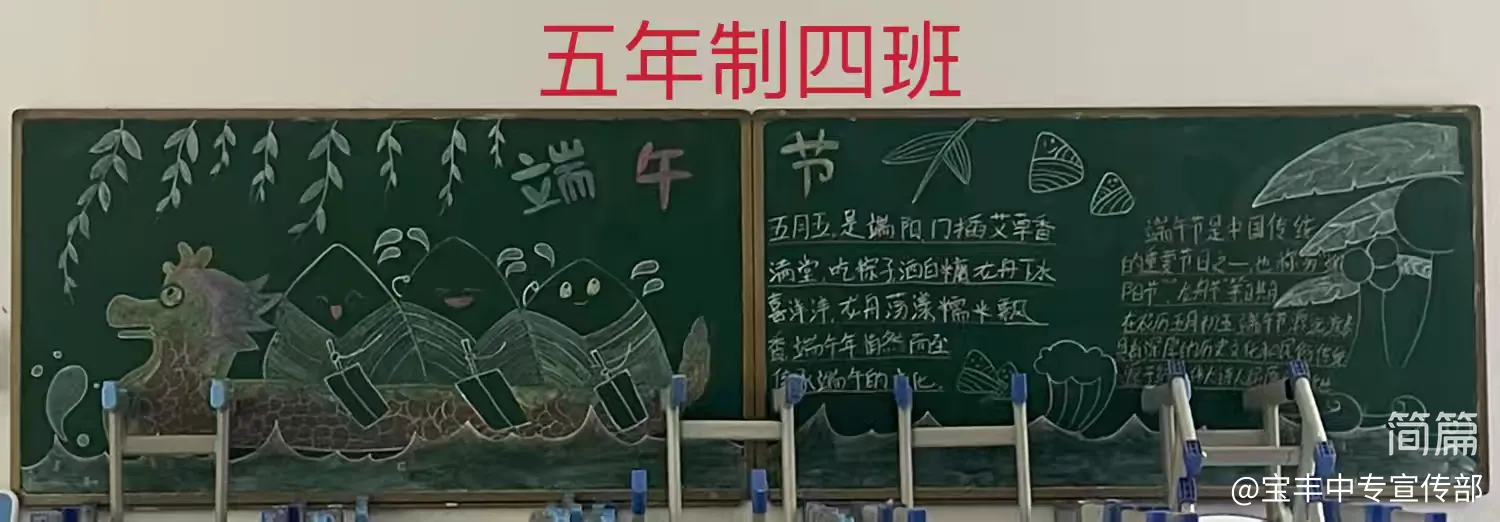 五年制四班
端午节
五月五,是端阳,门插艾草香
满堂,吃粽子洒白糖龙舟下水
喜洋洋,龙舟荡漾糯米飘
香,端午年自然而至
传承端午的文化.
端午节是中国传统
的重要节日之一,也称
阳节""龙舟节"等日期
在农历五月初五,端午节
着深厚的历史文化和民俗传统
简篇
@宝丰中专宣传部